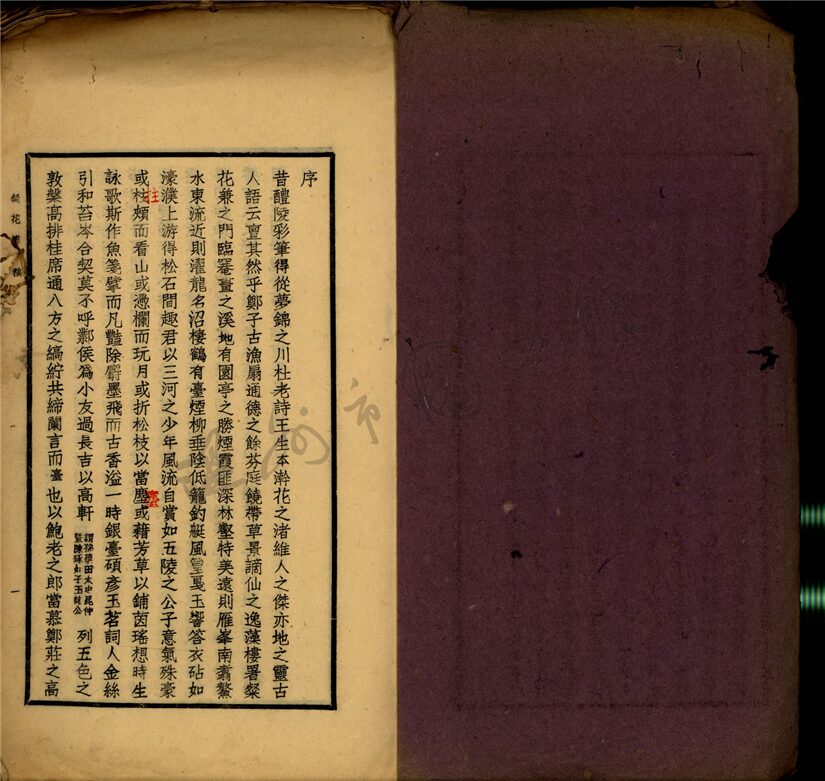 序
昔醴陵彩筆得從夢錦之川杜老詩王生本澣花之渚維人之傑亦地之靈古
人語云亶其然乎鄭子古漁扇通德之餘芬庭饒帶草景謫仙之逸藻樓署粲
花兼之門臨罨畫之溪地有園亭之勝煙霞匪深林壑特美遠則雁峯南翥鰲
水東流近則濯龍名沼棲鶴有臺煙柳垂陰低籠釣艇風篁戛玉響答衣砧如
濠濮上游得松石間趣君以三河之少年風流自賞如五陵之公子意氣殊豪
或柱頰而看山或憑欄而玩月或折松枝以當塵或藉芳草以鋪茵瑤想時生
詠歌斯作魚箋擘而凡豔除麝墨飛而古香溢一時銀臺碩彥玉茗詞人金絲
引和苔岑合契莫不呼鄴侯爲小友過長吉以高軒 列五色之
敦槃高排桂席通八方之縞紵共締蘭言而臺也以鮑老之郎當慕鄭莊之高
拄
麈